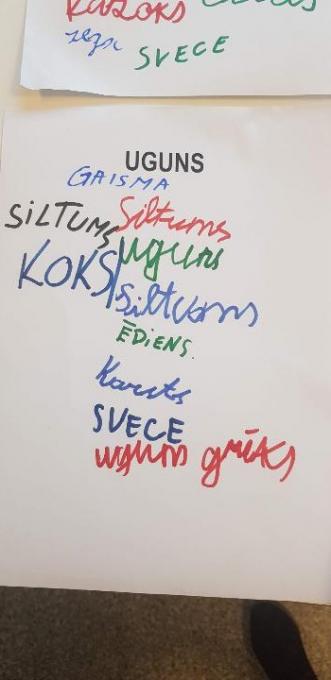 KAZOKS
SVECE
UGUNS
GAISMA
SILTUMS Siltums
uguns
KOKS Siltums
ĒDIENS.
Karsts
SVECE
uguns grēks